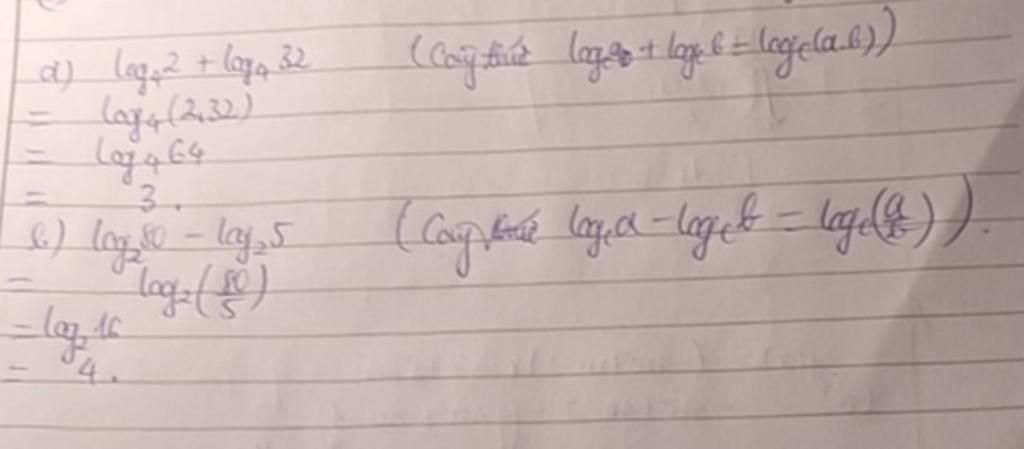 a) log₄2 + log₄32 (Công thức log_c a + log_c b = log_c(a.b))
= log₄(2.32)
= log₄64
= 3.
b.) log₂80 - log₂5 (Công thức log_c a - log_c b = log_c(a/b)).
= log₂(80/5)
= log₂16
= 4.